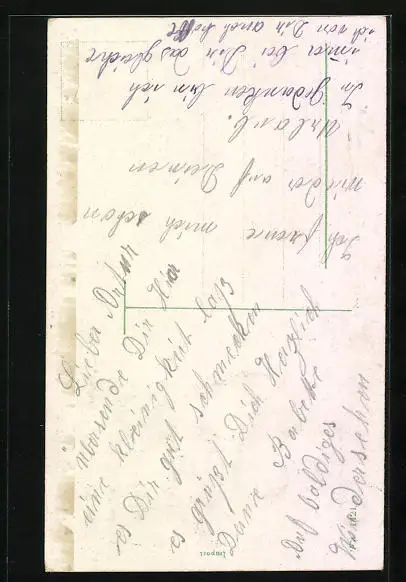 Lieber Artur
übersende Dir Hier
eine kleinigkeit laß
es Dir gut schmecken
es grüßt Dich Herzlich
Deine Babette
Auf baldiges
Wiedersehen
Ich freue mich schon
wieder auf Deinen
Urlaub.
In Gedanken bin ich
immer bei Dir das gleiche
ich von Dir auch hoffe
Import